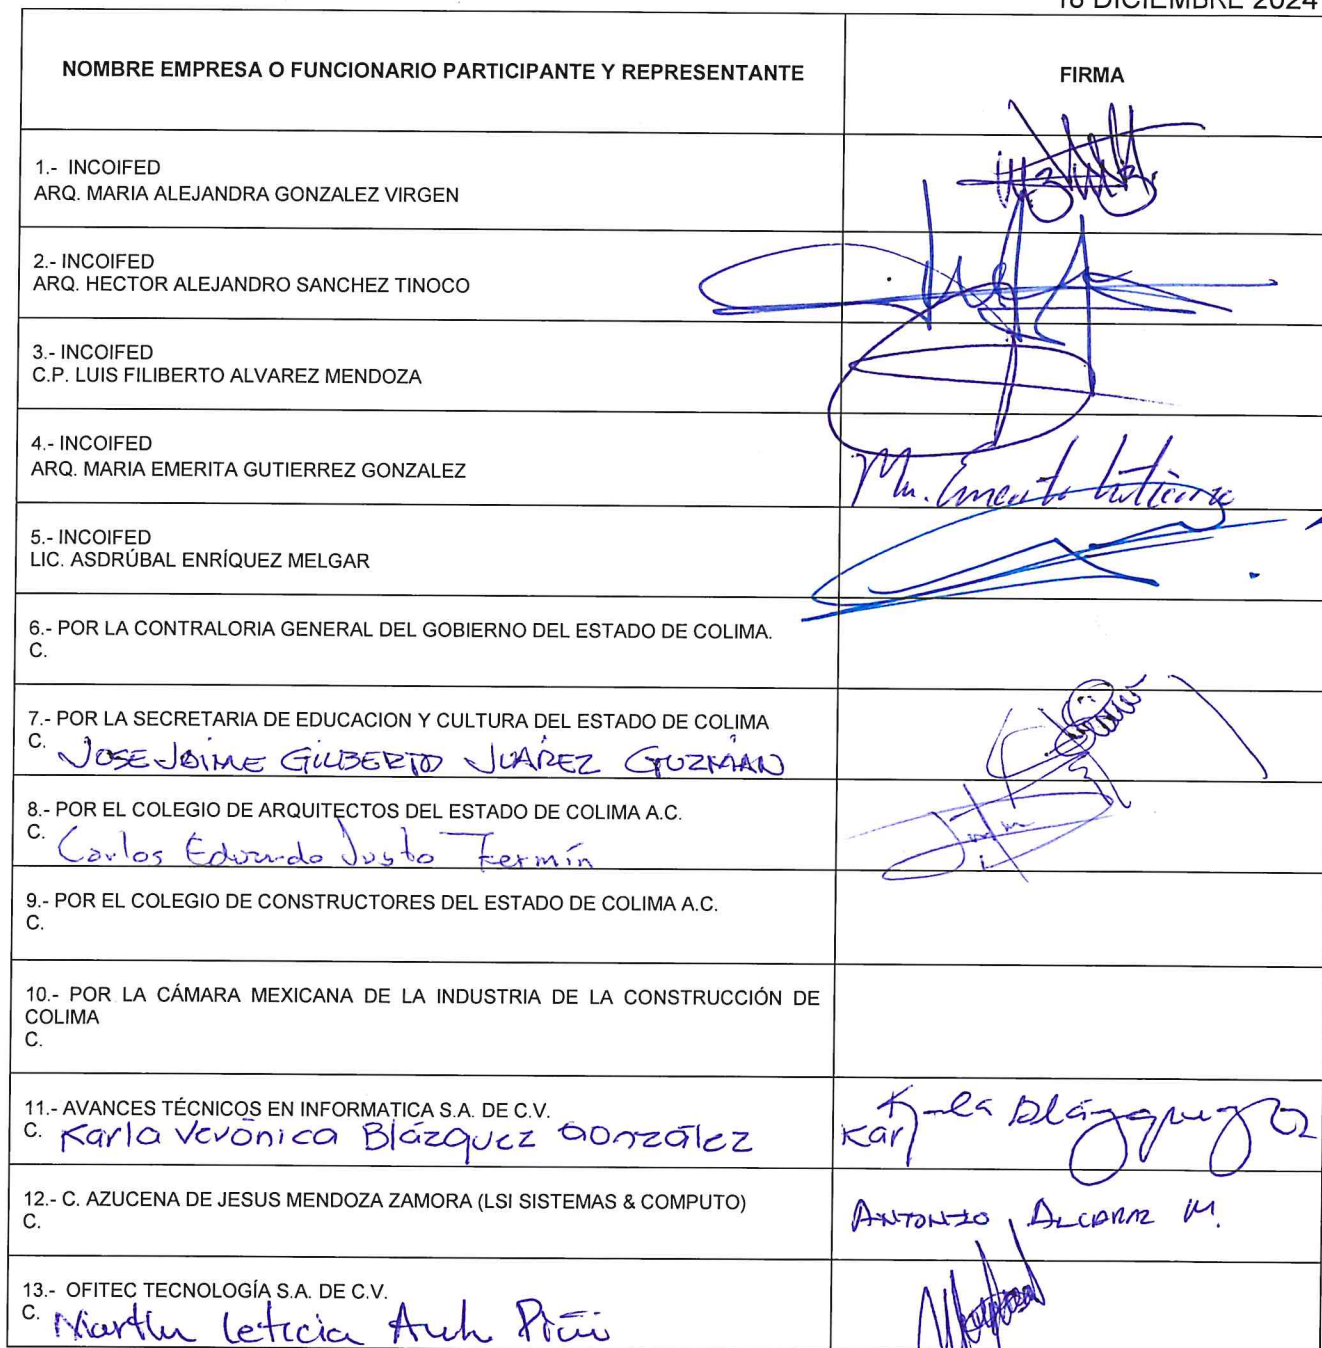 18 DICIEMBRE 2024
NOMBRE EMPRESA O FUNCIONARIO PARTICIPANTE Y REPRESENTANTE
FIRMA
1.- INCOIFED
ARQ. MARIA ALEJANDRA GONZALEZ VIRGEN
2.- INCOIFED
ARQ. HECTOR ALEJANDRO SANCHEZ TINOCO
3.- INCOIFED
C.P. LUIS FILIBERTO ALVAREZ MENDOZA
4.- INCOIFED
ARQ. MARIA EMERITA GUTIERREZ GONZALEZ
5.- INCOIFED
LIC. ASDRÚBAL ENRÍQUEZ MELGAR
6.- POR LA CONTRALORIA GENERAL DEL GOBIERNO DEL ESTADO DE COLIMA.
C.
7.- POR LA SECRETARIA DE EDUCACION Y CULTURA DEL ESTADO DE COLIMA
C. JOSE JAIME GILBERTO JUÁREZ GUZMÁN
8.- POR EL COLEGIO DE ARQUITECTOS DEL ESTADO DE COLIMA A.C.
C. Carlos Eduardo Justo Fermín
9.- POR EL COLEGIO DE CONSTRUCTORES DEL ESTADO DE COLIMA A.C.
C.
10.- POR LA CÁMARA MEXICANA DE LA INDUSTRIA DE LA CONSTRUCCIÓN DE
COLIMA
C.
11.- AVANCES TÉCNICOS EN INFORMATICA S.A. DE C.V.
C. Karla Verónica Blázquez González
Karla Blázquez
12.- C. AZUCENA DE JESUS MENDOZA ZAMORA (LSI SISTEMAS & COMPUTO)
C.
ANTONIO ALCARAZ M.
13.- OFITEC TECNOLOGÍA S.A. DE C.V.
C. Martha Leticia